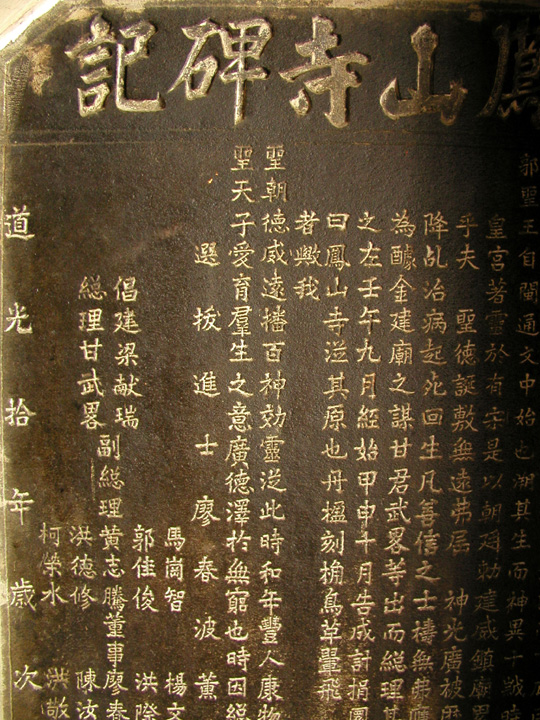 鳳山寺碑記
郭聖王自閩通文中始也溯其生而神異十戟
皇宮著靈於有宋是以朝舜勅建威鎮廟
乎夫 聖德誕敷無遠弗屆 神光廣被
降乩治病起死回生凡善信之士禱無弗應
為醵金建廟之謀甘君武畧等出而總理其
之左壬午九月經始甲申十月告成計捐園
曰鳳山寺溢其原也丹楹刻桷鳥草翬飛
者歟我
聖朝德威遠播百神効靈從此時和年豐人康物
聖天子愛育羣生之意廣德澤於無窮也時因總
選拔進士廖春波薰
馬崗智 楊文
倡建梁献瑞 郭佳俊 洪
總理甘武畧 副總理黃志騰董事廖春
洪德修 陳汝
柯榮水 洪敬
道光拾年歲次